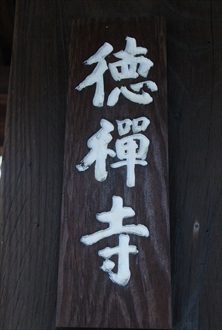 徳禪寺